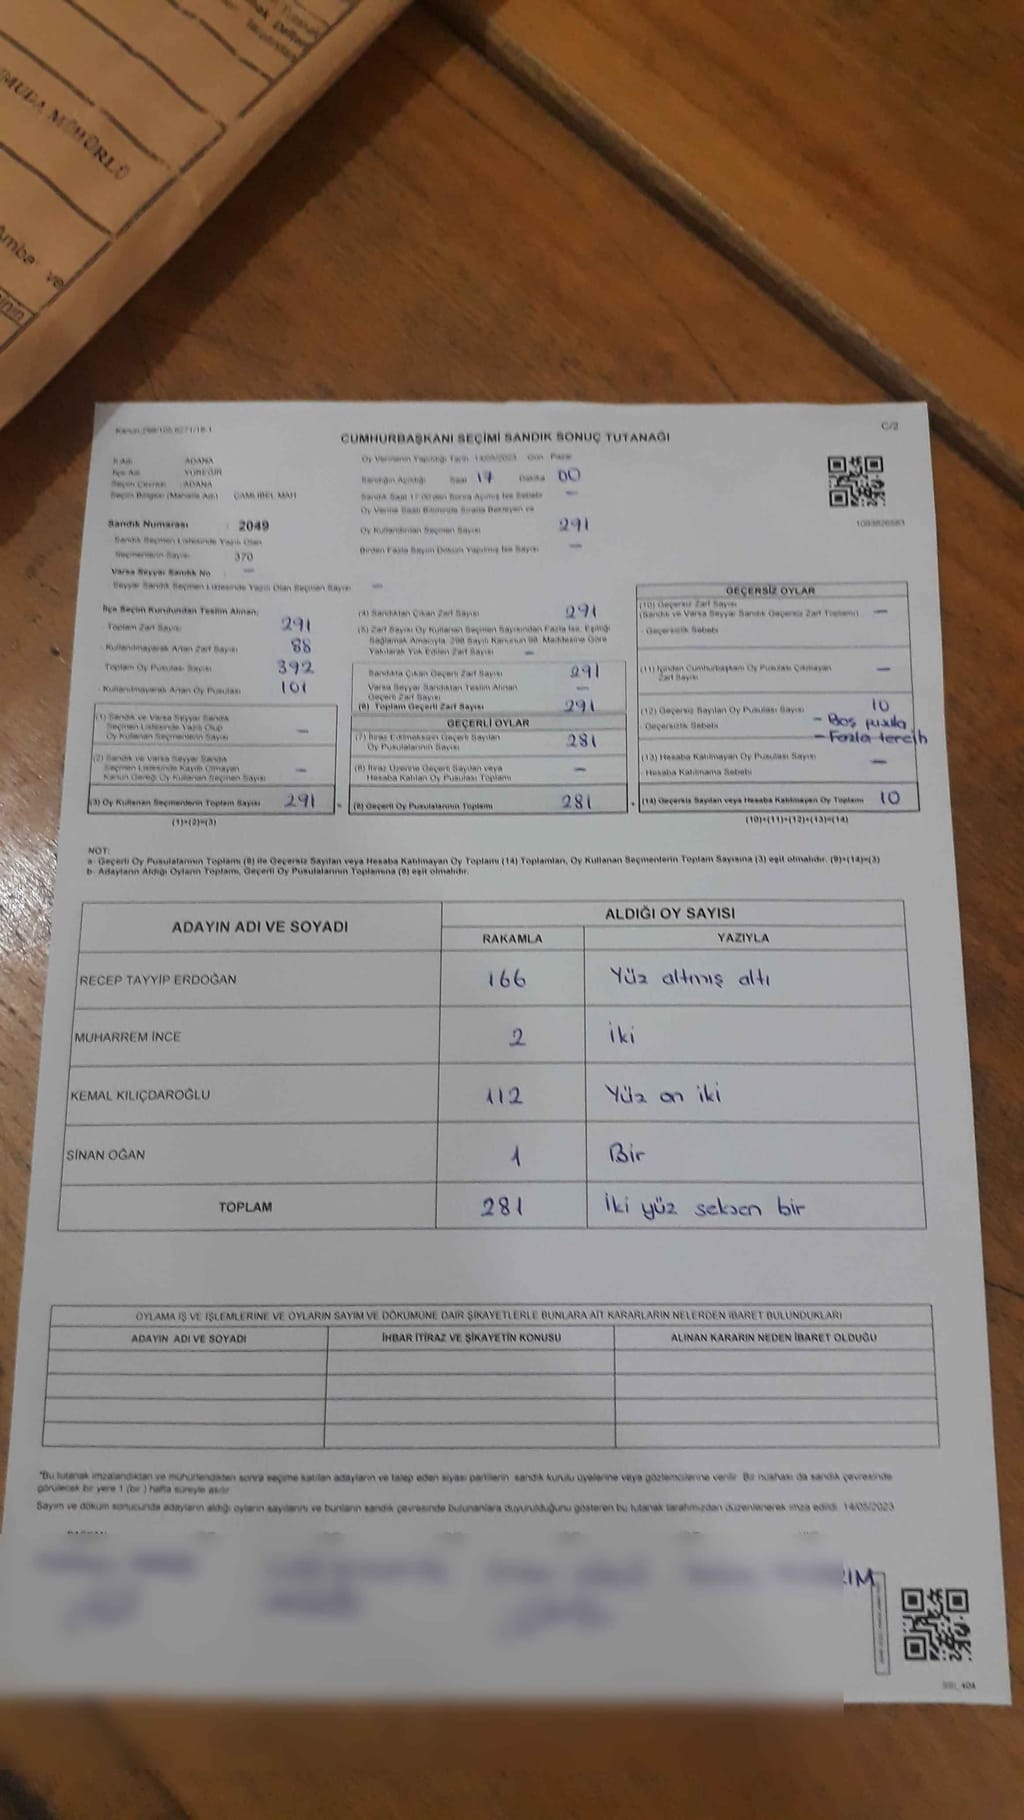 MÜHÜRLÜ
ve
Kanun:298/105,6271/18-1
C/2
CUMHURBAŞKANI SEÇİMİ SANDIK SONUÇ TUTANAĞI
İl Adı : ADANA
İlçe Adı : YÜREĞİR
Seçim Çevresi : ADANA
Seçim Bölgesi (Mahalle Adı) : ÇAMLIBEL MAH
Sandık Numarası : 2049
Sandık Seçmen Listesinde Yazılı Olan
Seçmenlerin Sayısı : 370
Varsa Seyyar Sandık No : —
Seyyar Sandık Seçmen Listesinde Yazılı Olan Seçmen Sayısı : —
Oy Vermenin Yapıldığı Tarih : 14/05/2023 Gün : Pazar
Sandığın Açıldığı Saat : 17 Dakika : 00
Sandık Saat 17.00'den Sonra Açılmış İse Sebebi : —
Oy Verme Saati Bitiminde Sırada Bekleyen ve
Oy Kullandırılan Seçmen Sayısı : 291
Birden Fazla Sayım Döküm Yapılmış İse Sayısı : —
İlçe Seçim Kurulundan Teslim Alınan;
Toplam Zarf Sayısı : 291
Kullanılmayarak Artan Zarf Sayısı : 88
Toplam Oy Pusulası Sayısı : 392
Kullanılmayarak Artan Oy Pusulası : 101
(1) Sandık ve Varsa Seyyar Sandık
Seçmen Listesinde Yazılı Olup
Oy Kullanan Seçmenlerin Sayısı : —
(2) Sandık ve Varsa Seyyar Sandık
Seçmen Listesinde Kayıtlı Olmayan
Kanun Gereği Oy Kullanan Seçmen Sayısı : —
(3) Oy Kullanan Seçmenlerin Toplam Sayısı : 291
(1)+(2)=(3)
(4) Sandıktan Çıkan Zarf Sayısı : 291
(5) Zarf Sayısı Oy Kullanan Seçmen Sayısından Fazla İse, Eşitliği
Sağlamak Amacıyla 298 Sayılı Kanunun 98. Maddesine Göre
Yakılarak Yok Edilen Zarf Sayısı : —
Sandıkta Çıkan Geçerli Zarf Sayısı : 291
Varsa Seyyar Sandıktan Teslim Alınan
Geçerli Zarf Sayısı : —
(6) Toplam Geçerli Zarf Sayısı : 291
GEÇERLİ OYLAR
(7) İtiraz Edilmeksizin Geçerli Sayılan
Oy Pusulalarının Sayısı : 281
(8) İtiraz Üzerine Geçerli Sayılan veya
Hesaba Katılan Oy Pusulası Toplamı : —
(9) Geçerli Oy Pusulalarının Toplamı : 281
GEÇERSİZ OYLAR
(10) Geçersiz Zarf Sayısı
(Sandık ve Varsa Seyyar Sandık Geçersiz Zarf Toplamı) : —
Geçersizlik Sebebi
(11) İçinden Cumhurbaşkanı Oy Pusulası Çıkmayan
Zarf Sayısı : —
(12) Geçersiz Sayılan Oy Pusulası Sayısı : 10
Geçersizlik Sebebi - Boş pusula
- Fazla tercih
(13) Hesaba Katılmayan Oy Pusulası Sayısı : —
Hesaba Katılmama Sebebi
(14) Geçersiz Sayılan veya Hesaba Katılmayan Oy Toplamı : 10
(10)+(11)+(12)+(13)=(14)
NOT:
a- Geçerli Oy Pusulalarının Toplamı (9) ile Geçersiz Sayılan veya Hesaba Katılmayan Oy Toplamı (14) Toplamları, Oy Kullanan Seçmenlerin Toplam Sayısına (3) eşit olmalıdır. (9)+(14)=(3)
b- Adayların Aldığı Oyların Toplamı, Geçerli Oy Pusulalarının Toplamına (9) eşit olmalıdır.
ADAYIN ADI VE SOYADI
ALDIĞI OY SAYISI
RAKAMLA YAZIYLA
RECEP TAYYİP ERDOĞAN 166 Yüz altmış altı
MUHARREM İNCE 2 İki
KEMAL KILIÇDAROĞLU 112 Yüz on iki
SİNAN OĞAN 1 Bir
TOPLAM 281 İki yüz seksen bir
OYLAMA İŞ VE İŞLEMLERİNE VE OYLARIN SAYIM VE DÖKÜMÜNE DAİR ŞİKAYETLERLE BUNLARA AİT KARARLARIN NELERDEN İBARET BULUNDUKLARI
ADAYIN ADI VE SOYADI İHBAR İTİRAZ VE ŞİKAYETİN KONUSU ALINAN KARARIN NEDEN İBARET OLDUĞU
*Bu tutanak imzalandıktan ve mühürlendikten sonra seçime katılan adayların ve talep eden siyasi partilerin sandık kurulu üyelerine veya gözlemcilerine verilir. Bir nüshası da sandık çevresinde
görülecek bir yere 1 (bir) hafta süreyle asılır.
Sayım ve döküm sonucunda adayların aldığı oyların sayılarını ve bunların sandık çevresinde bulunanlara duyurulduğunu gösteren bu tutanak tarafımızdan düzenlenerek imza edildi. 14/05/2023